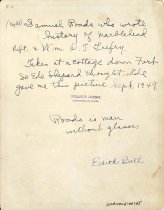 (left) Samuel Roads who wrote
history of Marblehead
Right & Wm. D. T. Trefry
Taken at a cottage down Fort
So Ele Shepard thought. She
gave me this picture Sept. 1949
Roads is man
without glasses
Edith Ball